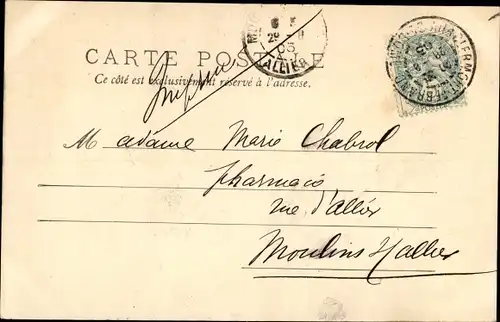 CARTE POSTALE
Ce côté est exclusivement réservé à l'adresse.
ALLIER
Madame Marie Chabrol
pharmacie
rue d'allier
Moulins Allier